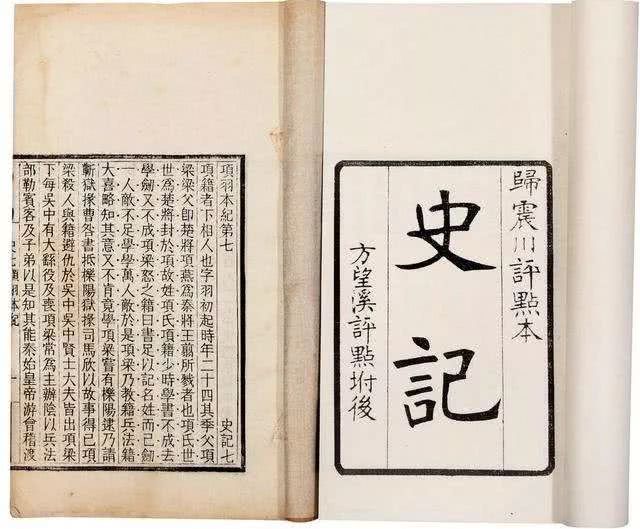 歸震川評點本
史記
方望溪評點坿後
項羽本紀第七 史記七
項籍者下相人也字羽初起時年二十四其季父項
梁梁父卽楚將項燕爲秦將王翦所戮者也項氏世
世爲楚將封於項故姓項氏項籍少時學書不成去
學劔又不成項梁怒之籍曰書足以記名姓而已劔
一人敵不足學學萬人敵於是項梁乃教籍兵法籍
大喜略知其意又不肯竟學項梁嘗有櫟陽逮乃請
蘄獄掾曹咎書抵櫟陽獄掾司馬欣以故事得已項
梁殺人與籍避仇於吳中吳中賢士大夫皆出項梁
下每吳中有大繇役及喪項梁常爲主辦陰以兵法
部勒賓客及子弟以是知其能秦始皇帝游會稽渡